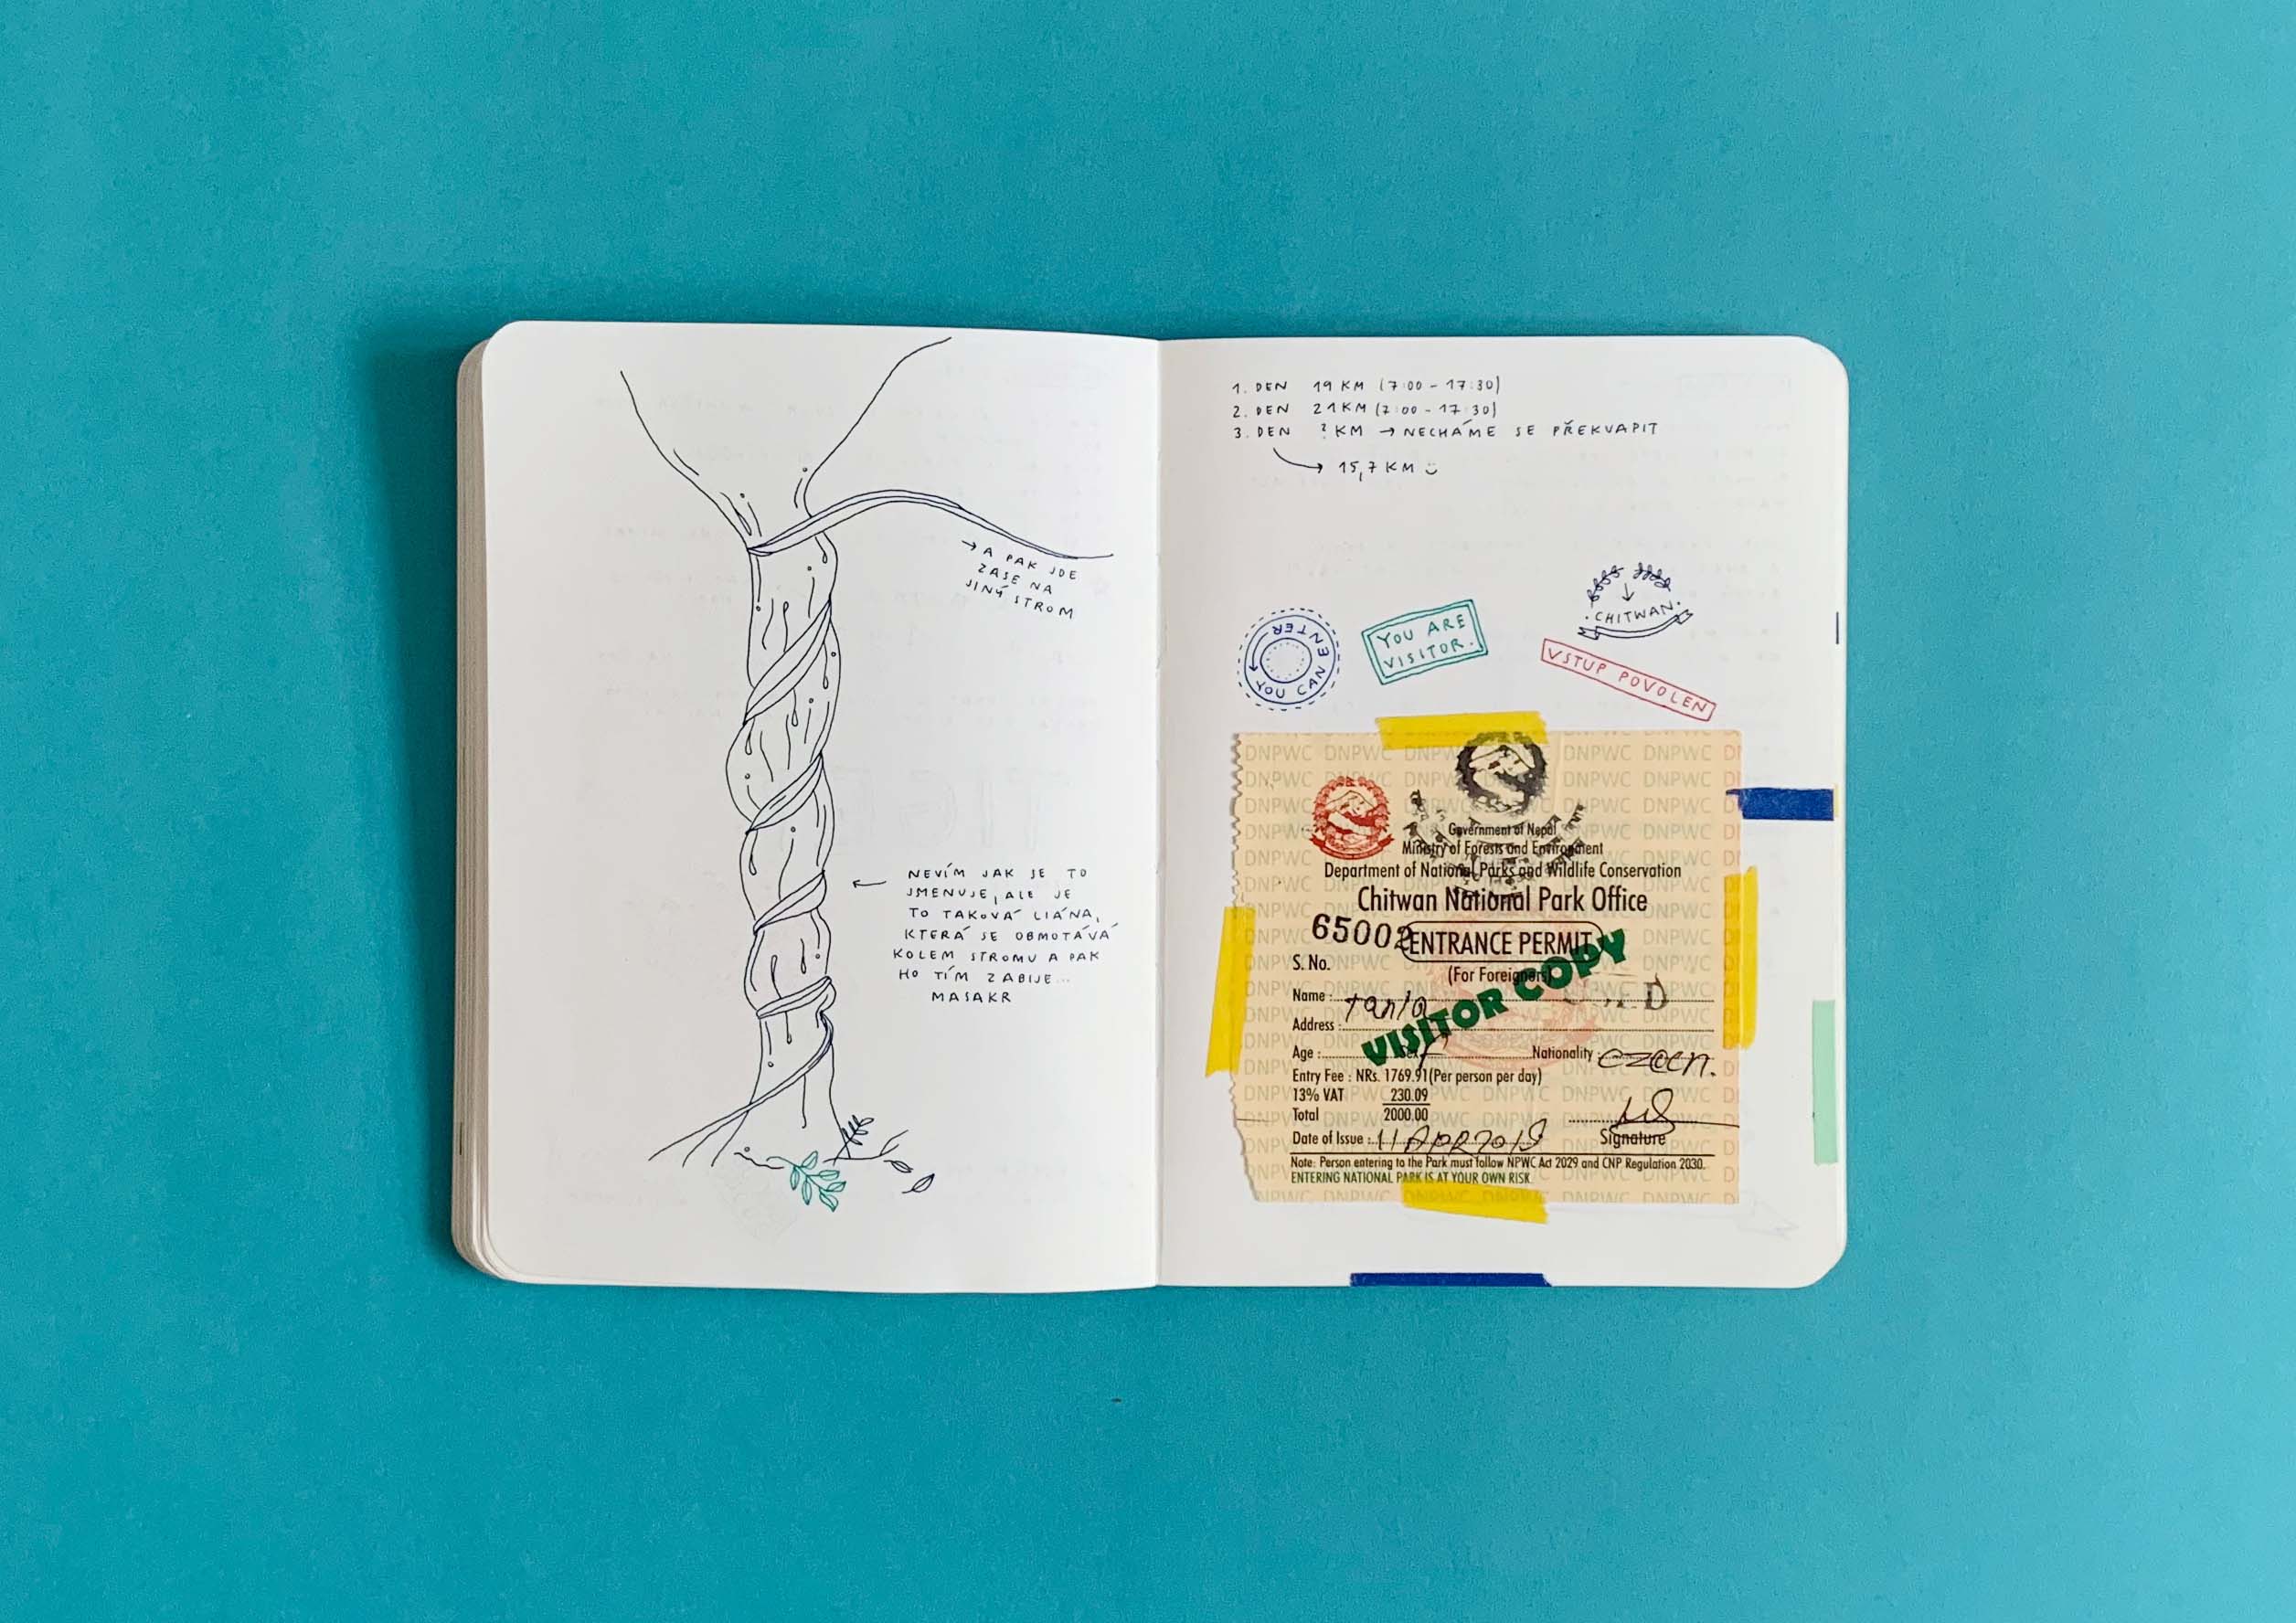 → A PAK JDE
ZASE NA
JINÝ STROM
← NEVÍM JAK SE TO
JMENUJE, ALE JE
TO TAKOVÁ LIÁNA,
KTERÁ SE OBMOTÁVÁ
KOLEM STROMU A PAK
HO TÍM ZABIJE...
MASAKR
1. DEN 19 KM (7:00 - 17:30)
2. DEN 21 KM (7:00 - 17:30)
3. DEN ? KM → NECHÁME SE PŘEKVAPIT
→ 15,7 KM
YOU CAN ENTER
YOU ARE
VISITOR.
CHITWAN.
VSTUP POVOLEN
DNPWC DNPWC DNPWC DNPWC DNPWC
Government of Nepal
Ministry of Forests and Environment
Department of National Parks and Wildlife Conservation
Chitwan National Park Office
65002 ENTRANCE PERMIT
S. No.
(For Foreigners)
VISITOR COPY
Name : D
Address :
Age : Sex F Nationality : czech.
Entry Fee : NRs. 1769.91(Per person per day)
13% VAT 230.09
Total 2000.00
Date of Issue : 11 APR 2018 Signature
Note: Person entering to the Park must follow NPWC Act 2029 and CNP Regulation 2030.
ENTERING NATIONAL PARK IS AT YOUR OWN RISK